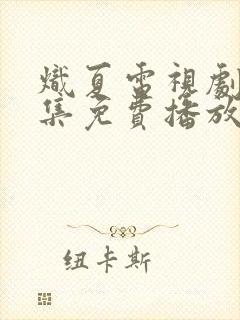 熾夏電視劇
集免費播放
纽卡斯